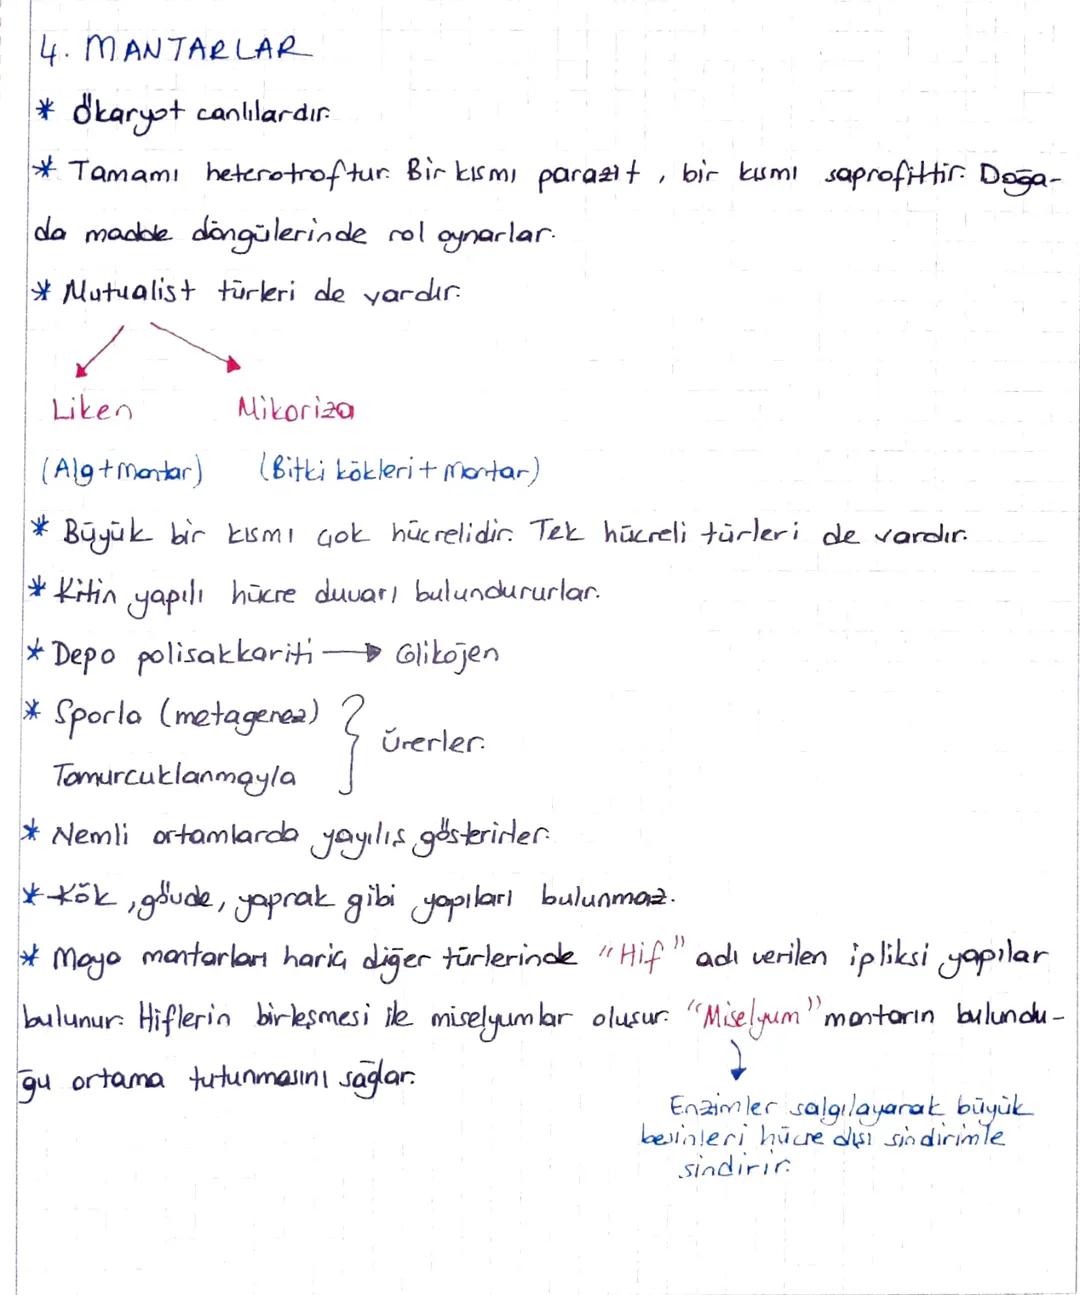 4. MANTARLAR
* Ökaryot canlılardır.
* Tamamı heterotroftur. Bir kısmı parazit, bir kısmı saprofittir. Doğa-
da madde döngülerinde rol oynarlar.
* Mutualist türleri de vardır.
Liken Mikoriza
(Alg+mantar) (Bitki kökleri + mantar)
* Büyük bir kısmı çok hücrelidir. Tek hücreli türleri de vardır.
* Kitin yapılı hücre duvarı bulundururlar.
* Depo polisakkariti → Glikojen
* Sporla (metagenez)
Tomurcuklanmayla } Ürerler.
* Nemli ortamlarda yayılış gösterirler.
* Kök, gövde, yaprak gibi yapıları bulunmaz.
* Maya mantarları hariç diğer türlerinde "Hif" adı verilen ipliksi yapılar
bulunur. Hiflerin birleşmesi ile miselyumlar oluşur. "Miselyum" mantarın bulundu-
ğu ortama tutunmasını sağlar.
Enzimler salgılayarak büyük
besinleri hücre dışı sindirimle
sindirir.